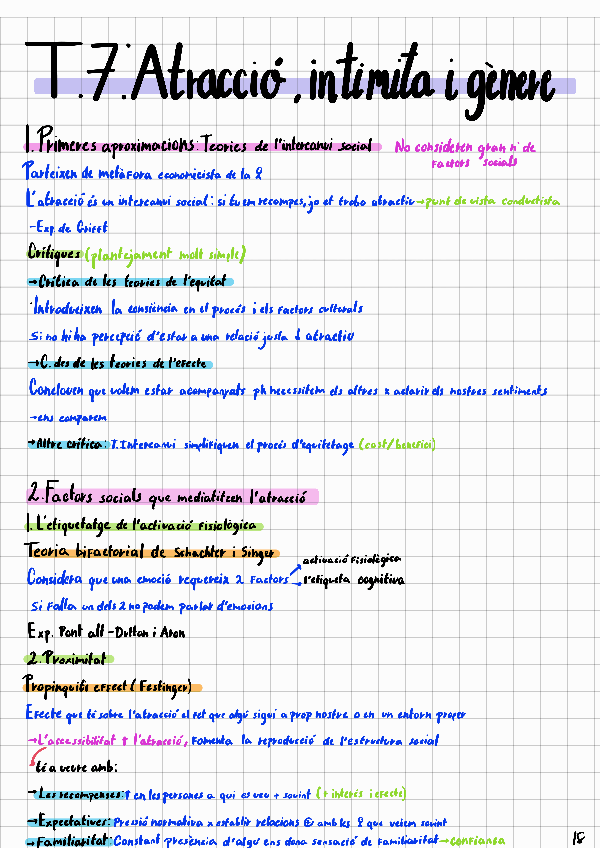 T.7: Atracció, intimitat i gènere
1. Primeres aproximacions. Teories de l'intercanvi social
No consideren gran nº de
factors socials
Parteixen de metàfora economicista de la
L'atracció és un intercanvi social: si tu em recompes, jo et trobo atractiu → punt de vista conductista
- Exp. de Griffit
Crítiques (plantejament molt simple)
→ Crítica de les teories de l'equitat
Introdueixen la consiència en el procés i els factors culturals
Si no hi ha percepció d'estar a una relació justa ↓ atractiu
→ C. des de les teories de l'efecte
Conclouen que volem estar acompanyats pk necessitem els altres x aclarir els nostres sentiments
→ ens comparem
→ Altre crítica: T. Intercanvi simplifiquen el procés d'equitetage (cost/benefici)
2. Factors socials que mediatitzen l'atracció
1. L'etiquetatge de l'activació fisiològica
Teoria bifactorial de Schachter i Singer
Considera que una emoció requereix 2 factors
activació fisiològica
l'etiqueta cognitiva
Si falla un dels 2 no podem parlat d'emocions
Exp. Pont alt - Dutton i Aron
2. Proximitat
Propinquiti effect (Festinger)
Efecte que té sobre l'atracció el fet que algú sigui a prop nostre o en un entorn proper
→ L'accessibilitat ↑ l'atracció, fomenta la reproducció de l'estructura social
té a veure amb:
→ Les recompenses: ↑ en les persones a qui es veu + sovint (+ interés i efecte)
→ Expectatives: Pressió normativa x establir relacions ⊕ amb les que veiem sovint
→ Familiaritat: Constant presència d'algú ens dona sensació de familiaritat → confiança
18